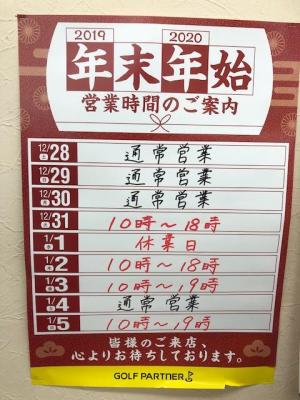 2019 2020
年末年始
営業時間のご案内
12/28 土 通常営業
12/29 日 通常営業
12/30 月 通常営業
12/31 火 10時〜18時
1/1 水 休業日
1/2 木 10時〜18時
1/3 金 10時〜19時
1/4 土 通常営業
1/5 日 10時〜19時
皆様のご来店、
心よりお待ちしております。
GOLF PARTNER